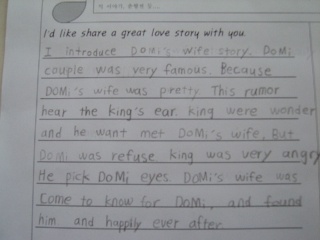 I'd like share a great love story with you.
I introduce DoMi's wife story. DoMi
couple was very famous. Because
DoMi's wife was pretty. This rumor
hear the king's ear. king were wonder
and he want met DoMi's wife, But
DoMi was refuse. king was very angry
He pick DoMi eyes. DoMi's wife was
Come to know for DoMi, and found
him and happily ever after